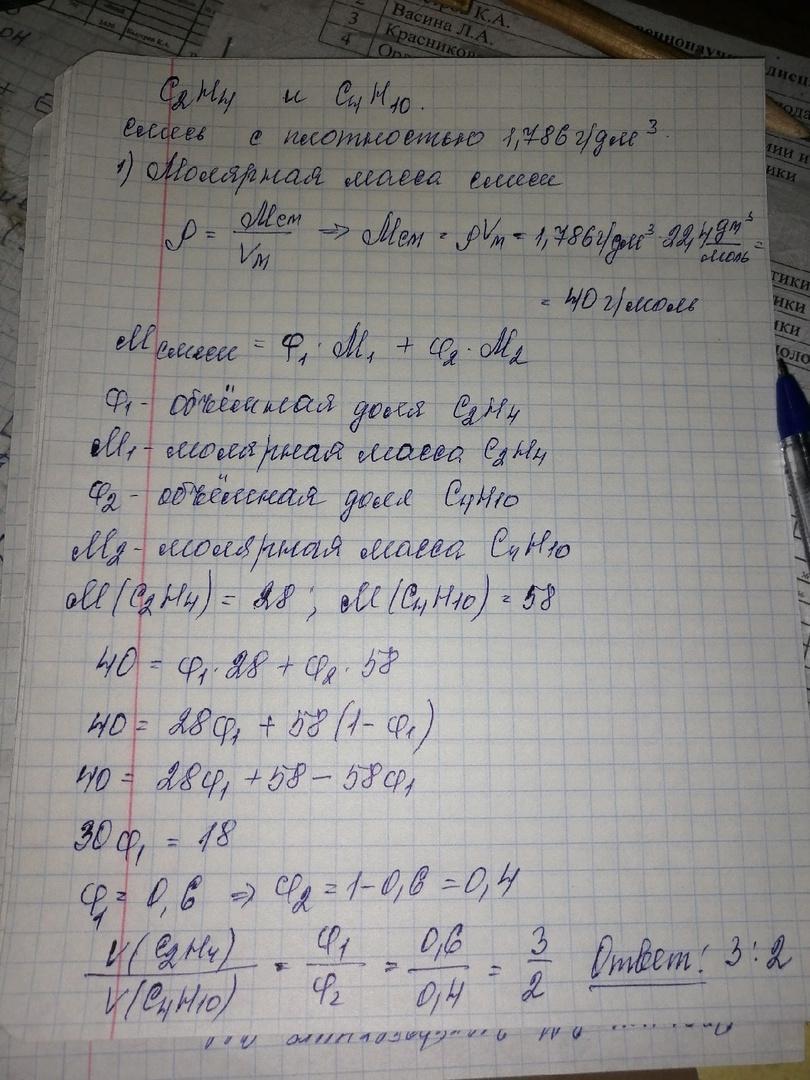 К.А.
3 Васина Л.А.
4 Красников
C₂H₄ и C₄H₁₀.
смесь с плотностью 1,786 г/дм³.
1) Молярная масса смеси
ρ = Mсм/Vm => Mсм = ρVm = 1,786 г/дм³ · 22,4 дм³/моль =
= 40 г/моль
Mсмеси = φ₁ · M₁ + φ₂ · M₂
φ₁ - объёмная доля C₂H₄
M₁ - молярная масса C₂H₄
φ₂ - объёмная доля C₄H₁₀
M₂ - молярная масса C₄H₁₀
M(C₂H₄) = 28 ; M(C₄H₁₀) = 58
40 = φ₁ · 28 + φ₂ · 58
40 = 28φ₁ + 58(1-φ₁)
40 = 28φ₁ + 58 - 58φ₁
30φ₁ = 18
φ₁ = 0,6 => φ₂ = 1-0,6 = 0,4
V(C₂H₄)/V(C₄H₁₀) = φ₁/φ₂ = 0,6/0,4 = 3/2 Ответ: 3:2